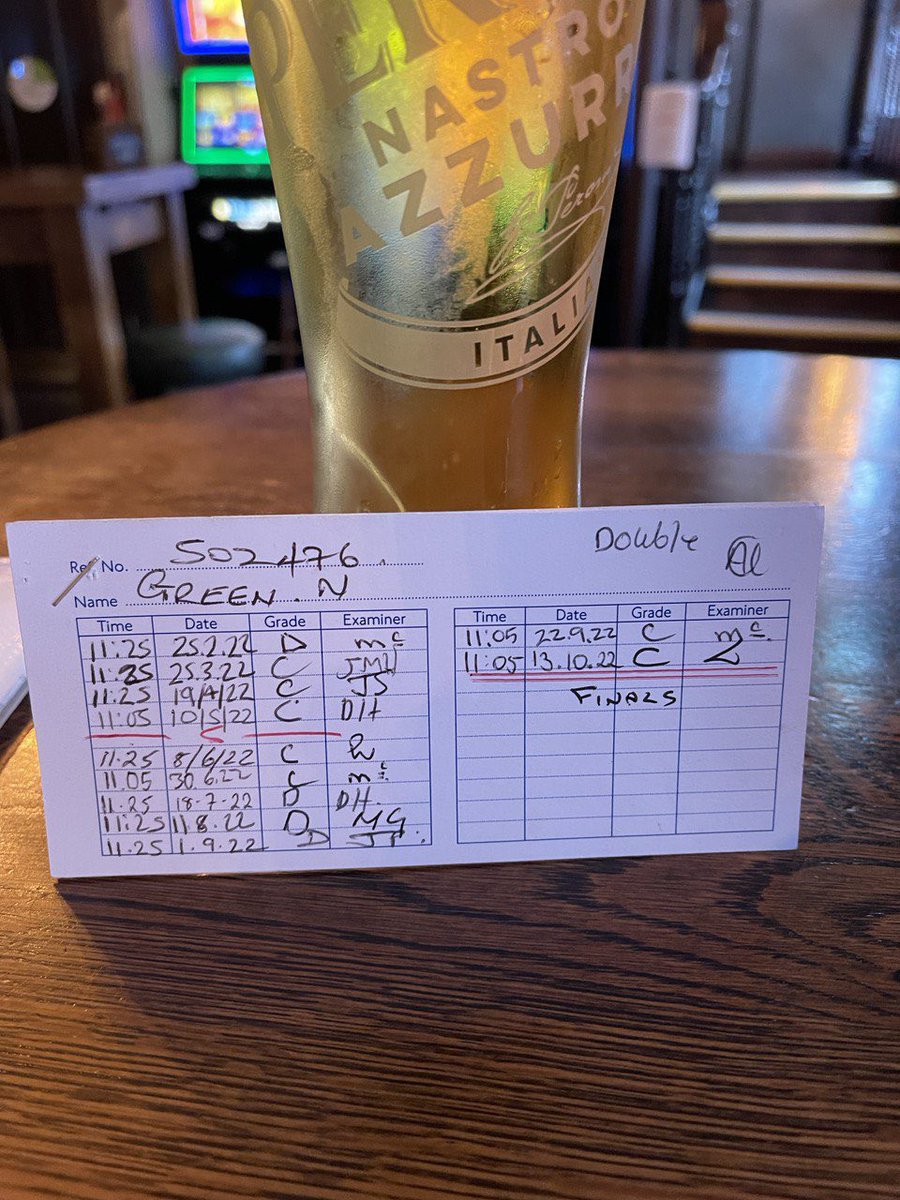 PER
NASTRO
AZZURR
G. Peroni
ITALIA
Double
Ref No. 502476
Al
Name GREEN. N
Time Date Grade Examiner
11:25 25.2.22 D mc
11:25 25.3.22 C JMH
11:25 19/4/22 C JS
11:05 10/5/22 C DH
11.25 8/6/22 C
11.05 30.6.22 C mc
11.25 18-7-22 D DH.
11:25 11.8.22 D MG
11.25 1.9.22 D
Time Date Grade Examiner
11:05 22.9.22 C mc
11:05 13.10.22 C
FINALS